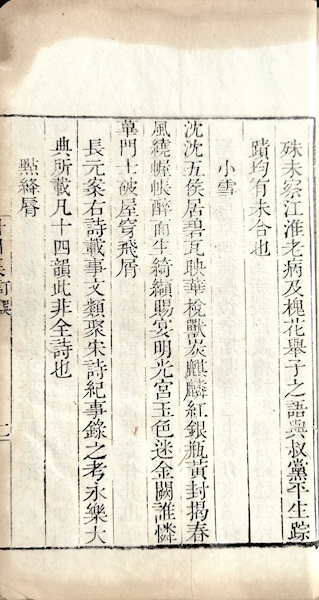 殊未察江淮老病及槐花舉子之語與叔黨平生踪
蹟均有未合也
小雪
沈沈五侯居碧瓦映華榱獸炭麒麟紅銀瓶黃封揭春
風繞幄帳醉面生綺纈賜宴明光宮玉色迷金闕誰憐
篳門士破屋穿飛屑
長元案右詩載事文類聚宋詩紀事錄之考永樂大
典所載凡十四韻此非全詩也
點絳脣